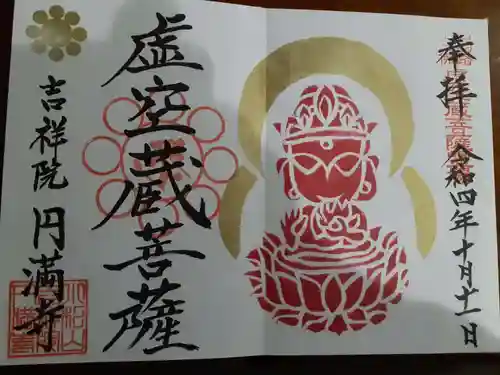 奉拝
令和四年十月十一日
虚空蔵菩薩
吉祥院
円満寺